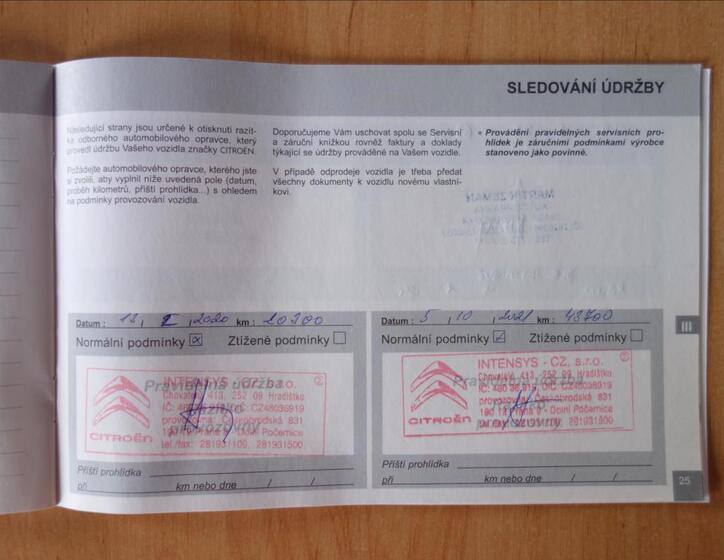 SLEDOVÁNÍ ÚDRŽBY
Následující strany jsou určené k otisknutí razít-
ka odborného automobilového opravce, který
provedl údržbu Vašeho vozidla značky CITROËN.
Požádejte automobilového opravce, kterého jste
si zvolili, aby vyplnil níže uvedená pole (datum,
průběh kilometrů, příští prohlídka...) s ohledem
na podmínky provozování vozidla.
Doporučujeme Vám uschovat spolu se Servisní
a záruční knížkou rovněž faktury a doklady
týkající se údržby prováděné na Vašem vozidle.
V případě odprodeje vozidla je třeba předat
všechny dokumenty k vozidlu novému vlastní-
kovi.
* Provádění pravidelných servisních pro-
hlídek je záručními podmínkami výrobce
stanoveno jako povinné.
MARTIN ZEMAN
III
Datum : / /2020 km : 20200
Normální podmínky Ztížené podmínky
Pravidelná údržba
provozovny
INTENSYS - CZ, s.r.o.
Chovatelů 413, 252 09 Hradištko
IČ: DIČ: CZ48036919
provozovna: Českobrodská 831
190 12 Praha 9 - Dolní Počernice
tel./fax: 281931109, 281931500
CITROËN
Příští prohlídka
při km nebo dne / /
Datum : 5 / 10 / 2021 km : 48700
Normální podmínky Ztížené podmínky
Pravidelná údržba
provozovny
INTENSYS - CZ, s.r.o.
Chovatelů 413, 252 09 Hradištko
IČ: 480 36 919, DIČ: CZ48036919
provozovna: Českobrodská 831
190 12 Praha 9 - Dolní Počernice
tel./fax: 281931109, 281931500
CITROËN
Příští prohlídka
při km nebo dne / /
25